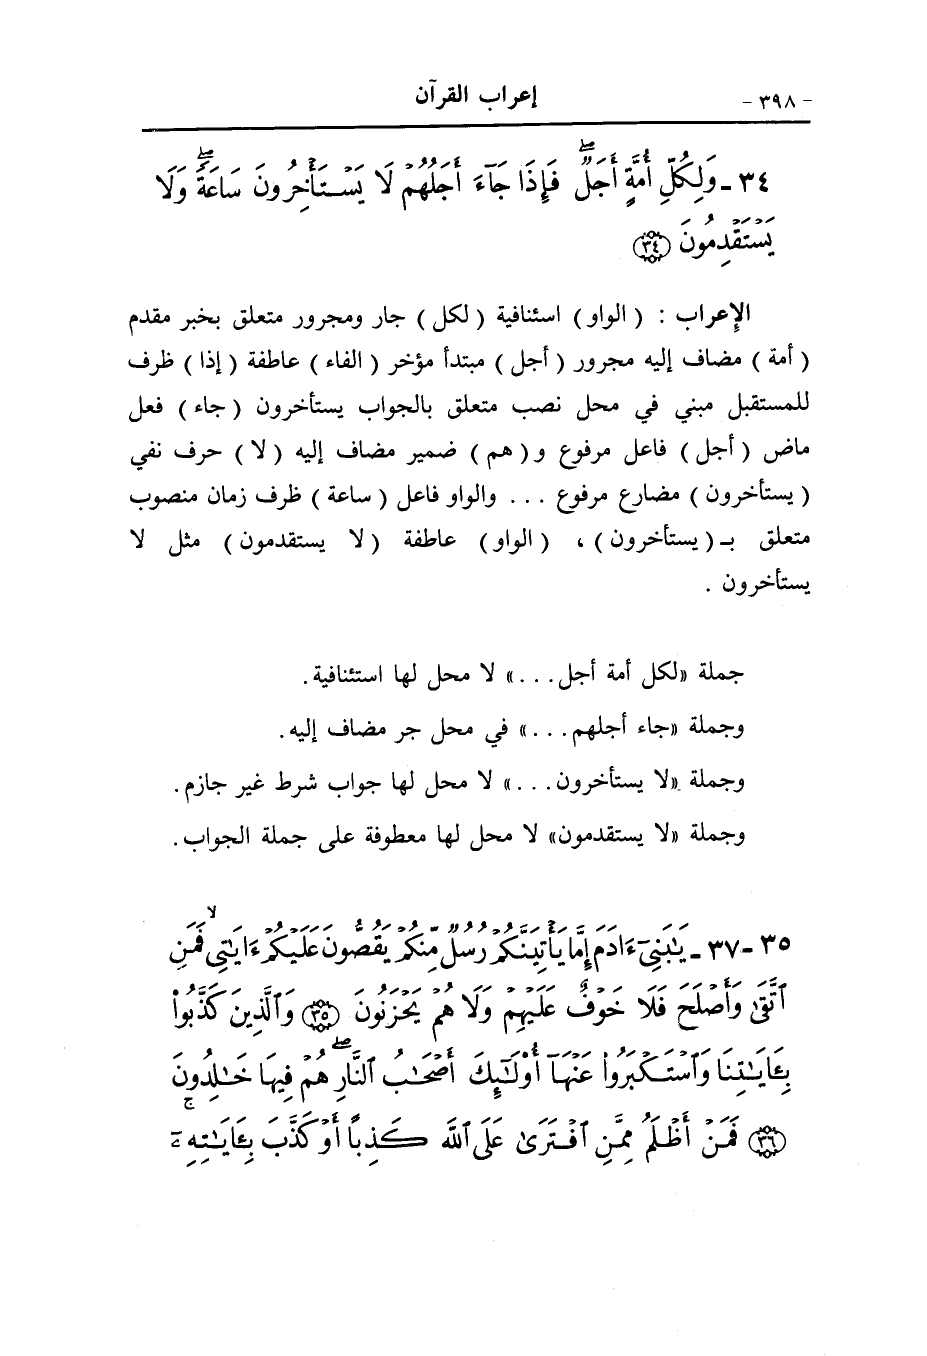 - ٣٩٨ - إعراب القرآن
٣٤ - وَلِكُلِّ أُمَّةٍ أَجَلٌ ۖ فَإِذَا جَآءَ أَجَلُهُمْ لَا يَسْتَأْخِرُونَ سَاعَةً ۖ وَلَا
يَسْتَقْدِمُونَ ﴿٣٤﴾
الإعراب : ( الواو ) استئنافية ( لكل ) جار ومجرور متعلق بخبر مقدم
( أمة ) مضاف إليه مجرور ( أجل ) مبتدأ مؤخر ( الفاء ) عاطفة ( إذا ) ظرف
للمستقبل مبني في محل نصب متعلق بالجواب يستأخرون ( جاء ) فعل
ماض ( أجل ) فاعل مرفوع و( هم ) ضمير مضاف إليه ( لا ) حرف نفي
( يستأخرون ) مضارع مرفوع . . . والواو فاعل ( ساعة ) ظرف زمان منصوب
متعلق بـ ( يستأخرون ) ، ( الواو ) عاطفة ( لا يستقدمون ) مثل لا
يستأخرون .
جملة «لكل أمة أجل. . .» لا محل لها استئنافية.
وجملة «جاء أجلهم. . .» في محل جر مضاف إليه.
وجملة «لا يستأخرون. . .» لا محل لها جواب شرط غير جازم.
وجملة «لا يستقدمون» لا محل لها معطوفة على جملة الجواب.
٣٥ - ٣٧ - يَٰبَنِىٓ ءَادَمَ إِمَّا يَأْتِيَنَّكُمْ رُسُلٌ مِّنكُمْ يَقُصُّونَ عَلَيْكُمْ ءَايَٰتِى ۙ فَمَنِ
ٱتَّقَىٰ وَأَصْلَحَ فَلَا خَوْفٌ عَلَيْهِمْ وَلَا هُمْ يَحْزَنُونَ ﴿٣٥﴾ وَٱلَّذِينَ كَذَّبُوا۟
بِـَٔايَٰتِنَا وَٱسْتَكْبَرُوا۟ عَنْهَآ أُو۟لَٰٓئِكَ أَصْحَٰبُ ٱلنَّارِ ۖ هُمْ فِيهَا خَٰلِدُونَ
﴿٣٦﴾ فَمَنْ أَظْلَمُ مِمَّنِ ٱفْتَرَىٰ عَلَى ٱللَّهِ كَذِبًا أَوْ كَذَّبَ بِـَٔايَٰتِهِۦٓ ۚ